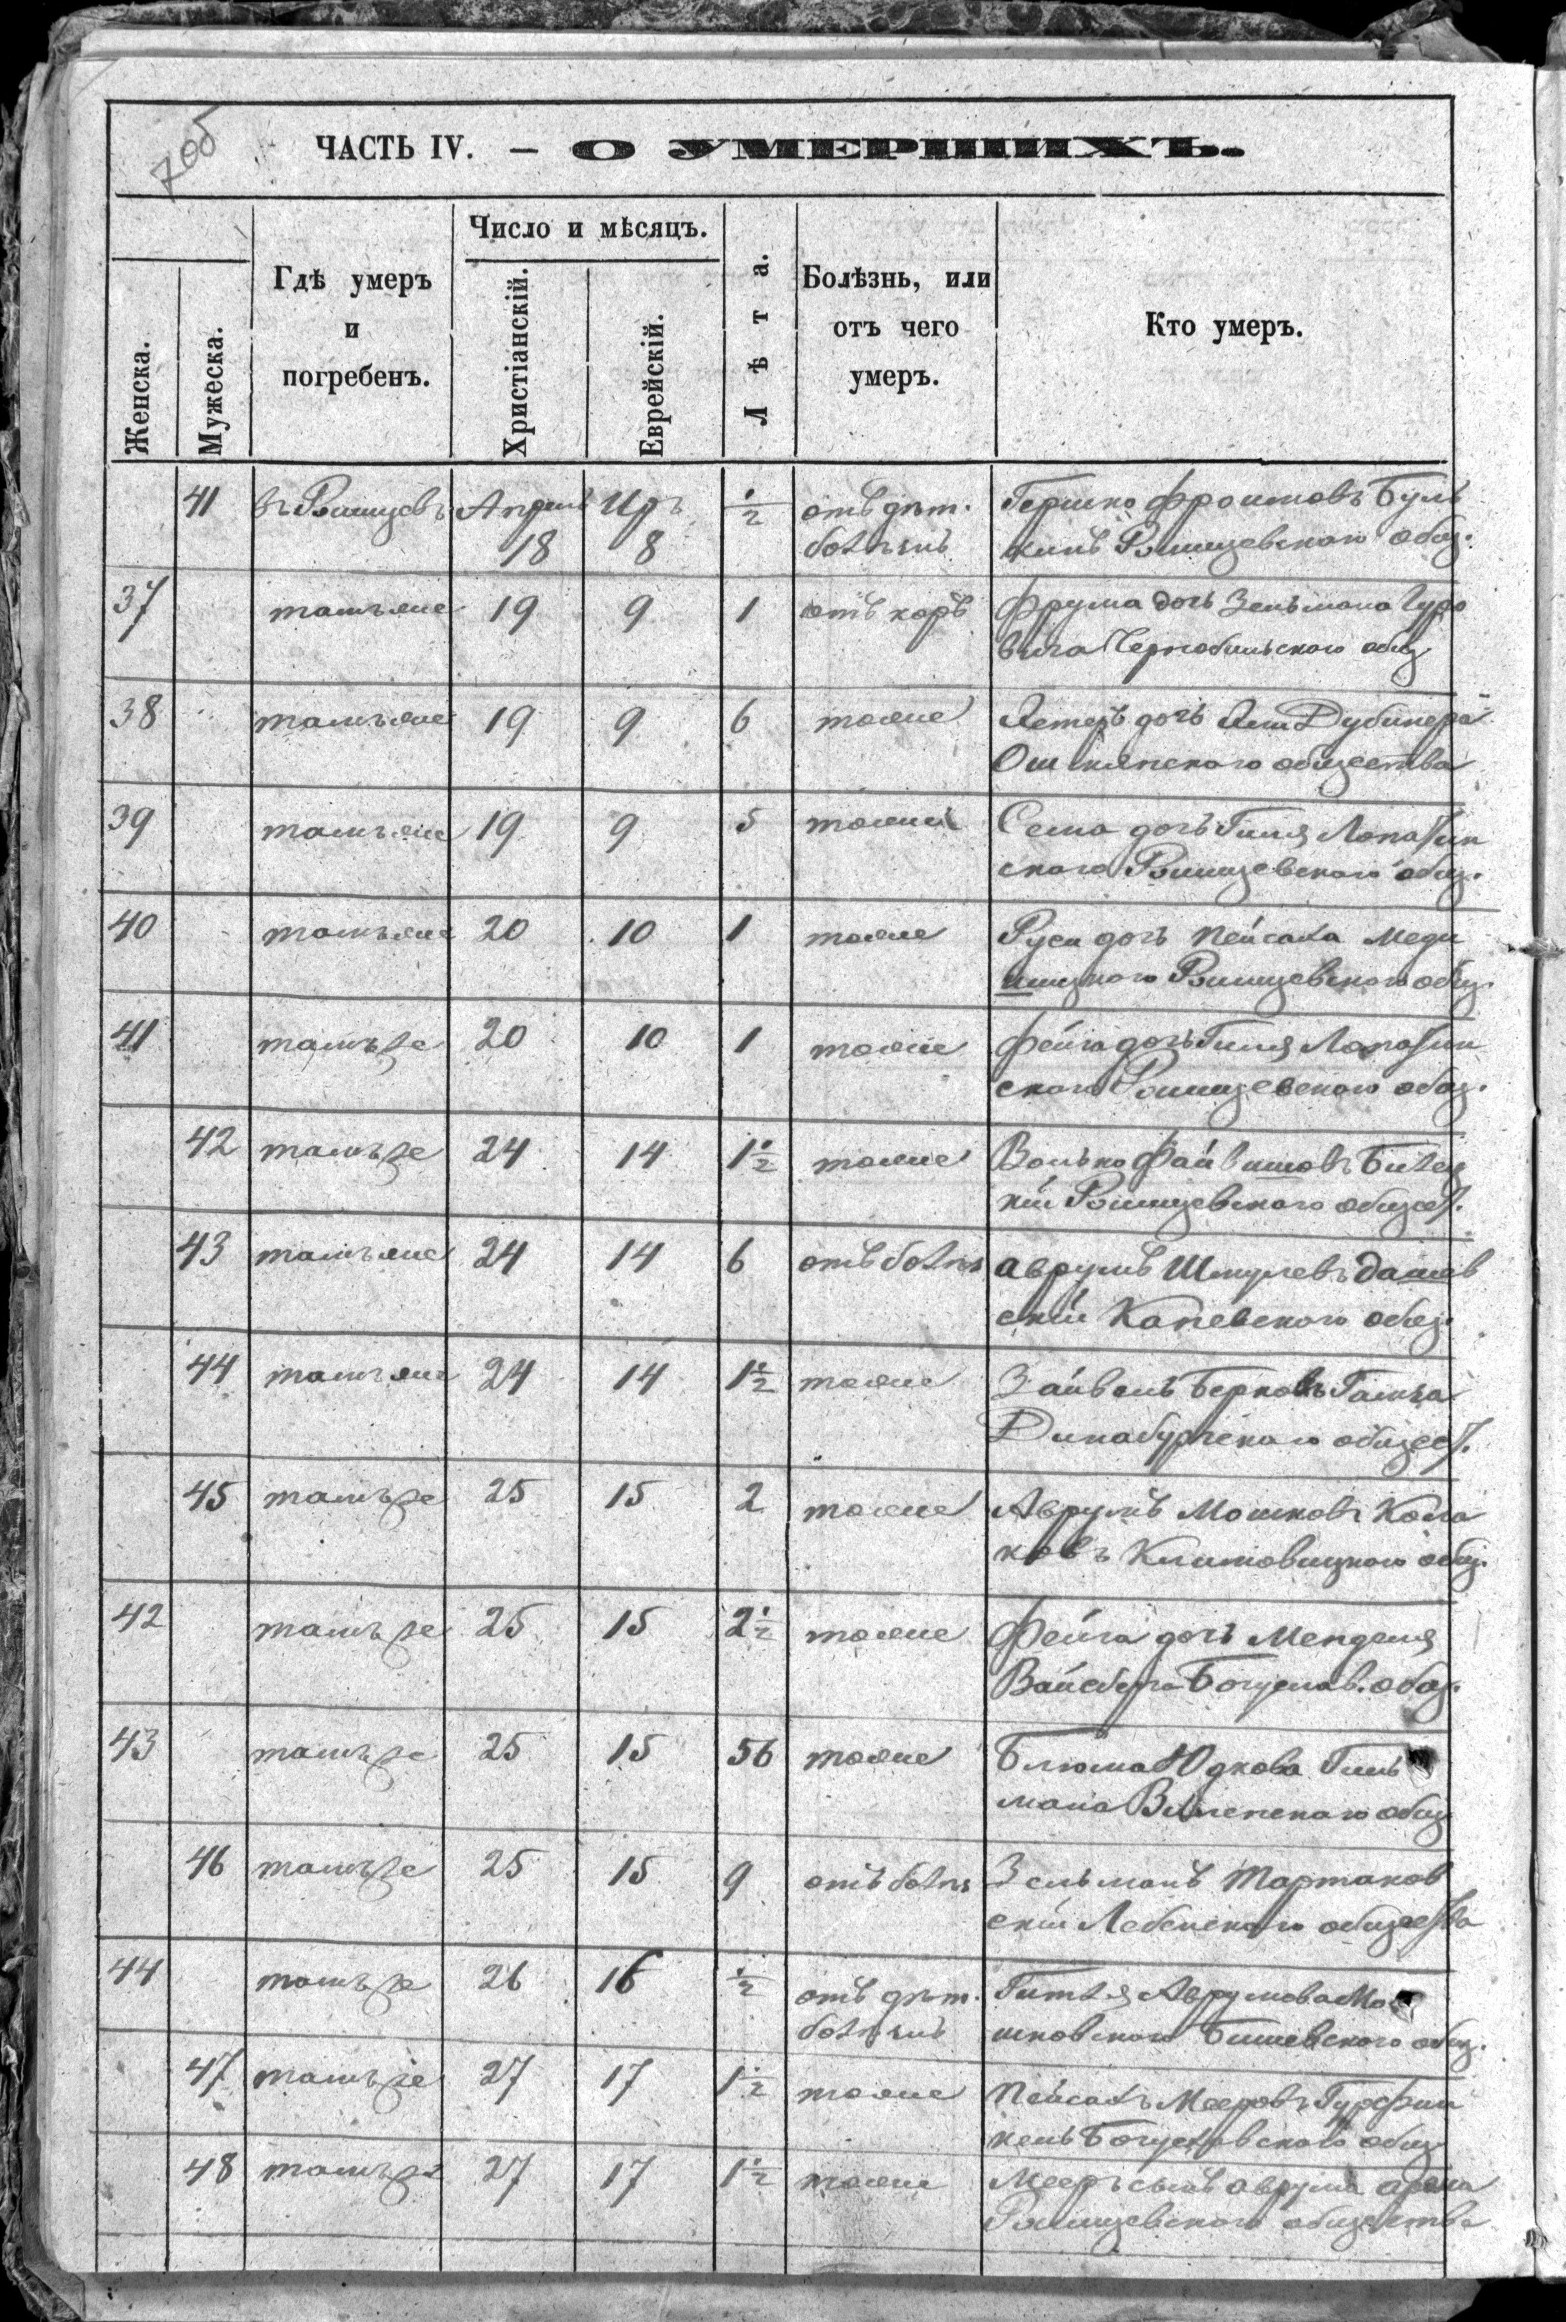 70б
ЧАСТЬ IV. – О УМЕРШИХЪ.
Женска.
Мужеска.
Гдѣ умеръ
и
погребенъ.
Число и мѣсяцъ.
Христіанскій.
Еврейскій.
Лѣта.
Болѣзнь, или
отъ чего
умеръ.
Кто умеръ.
41 въ Ржищевѣ Апрель Иръ ½ отъ дѣт. Гершко Фроимовъ Буль
18 8 болѣзнъ кинъ Ржищевского общ.
37 тамъ же 19 9 1 отъ корѣ Фрума дочь Зельмана Гуро
вича Чернобыльского общ
38 тамъ же 19 9 6 тоже дочь Дубинера
общества
39 тамъ же 19 9 5 тоже Сема дочь Гиля Лопатин
ского Ржищевского общ.
40 тамъ же 20 10 1 тоже Руси дочь Пейсаха Меди
ницкого Ржищевского общ.
41 тамъ же 20 10 1 тоже Фейга дочь Гиля Лопатин
ского Ржищевского общ.
42 тамъ же 24 14 1½ тоже Волько Файвишовъ
кій Ржищевского общест.
43 тамъ же 24 14 6 отъ болѣз Аврумъ Шмулевъ Дашев
скій Каневского общ.
44 тамъ же 24 14 1½ тоже Зайвель Берковъ
Динабургского общест.
45 тамъ же 25 15 2 тоже Аврумъ Мошковъ
Климовицкого общ.
42 тамъ же 25 15 2½ тоже Фейга дочь Менделя
Вайсберга Богуслав. общ.
43 тамъ же 25 15 56 тоже Блюма Юдкова Гиль
мана Виленского общ
46 тамъ же 25 15 9 отъ болѣз Зельманъ Тартаков
скій общества
44 тамъ же 26 16 ½ отъ дѣт. Гитля Аврумова Мо
болѣзнъ шковского общ.
47 тамъ же 27 17 1½ тоже Пейсахъ Мееровъ Гурфин
кель Богуславского общ
48 тамъ же 27 17 1½ тоже Мееръ сынъ Аврума
Ржищевского общества